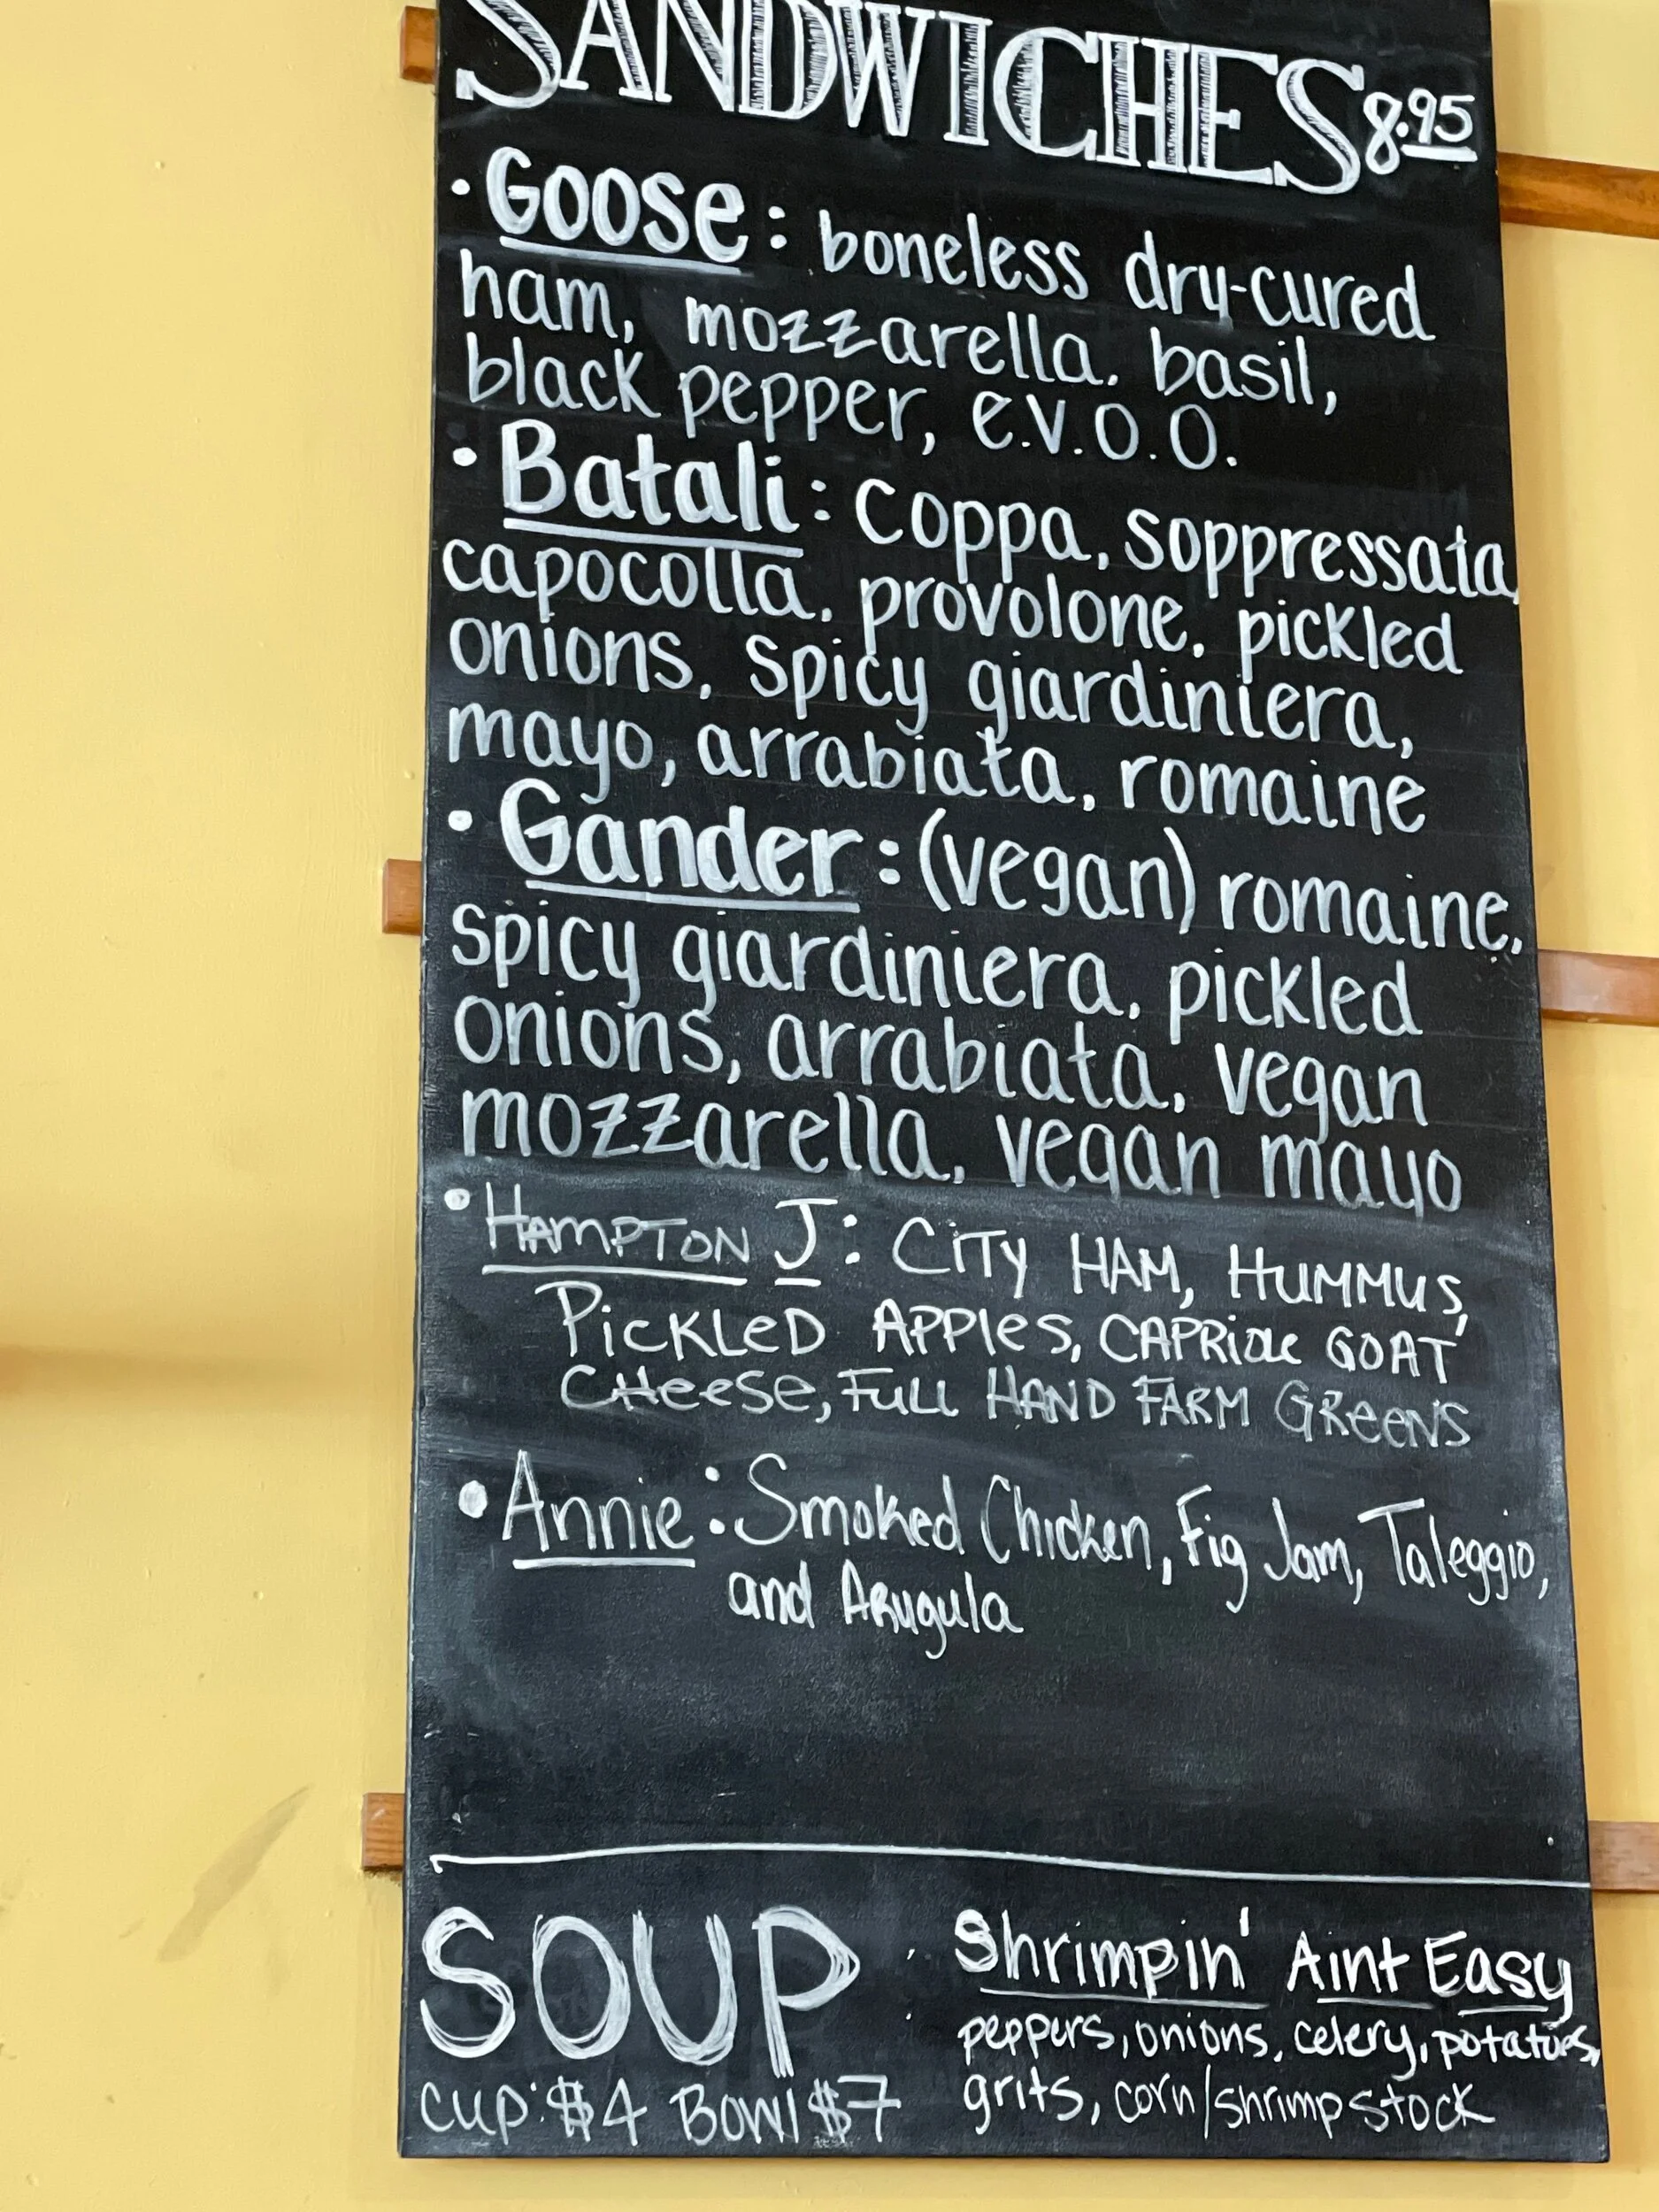 SANDWICHES 8.95
• Goose: boneless dry-cured
ham, mozzarella, basil,
black pepper, e.v.o.o.
• Batali: coppa, soppressata,
capocolla, provolone, pickled
onions, spicy giardiniera,
mayo, arrabiata, romaine
• Gander: (vegan) romaine,
spicy giardiniera, pickled
onions, arrabiata, vegan
mozzarella, vegan mayo
• HAMPTON J: CiTY HAM, HUMMUS,
PicKLeD APPles, CAPRiole GOAT
CHeese, FULL HAND FARM GReeNS
• Annie: Smoked Chicken, Fig Jam, Taleggio,
and Arugula
SOUP
cup: $4 Bowl $7
Shrimpin' Aint Easy
peppers, onions, celery, potatoes,
grits, corn/shrimp stock